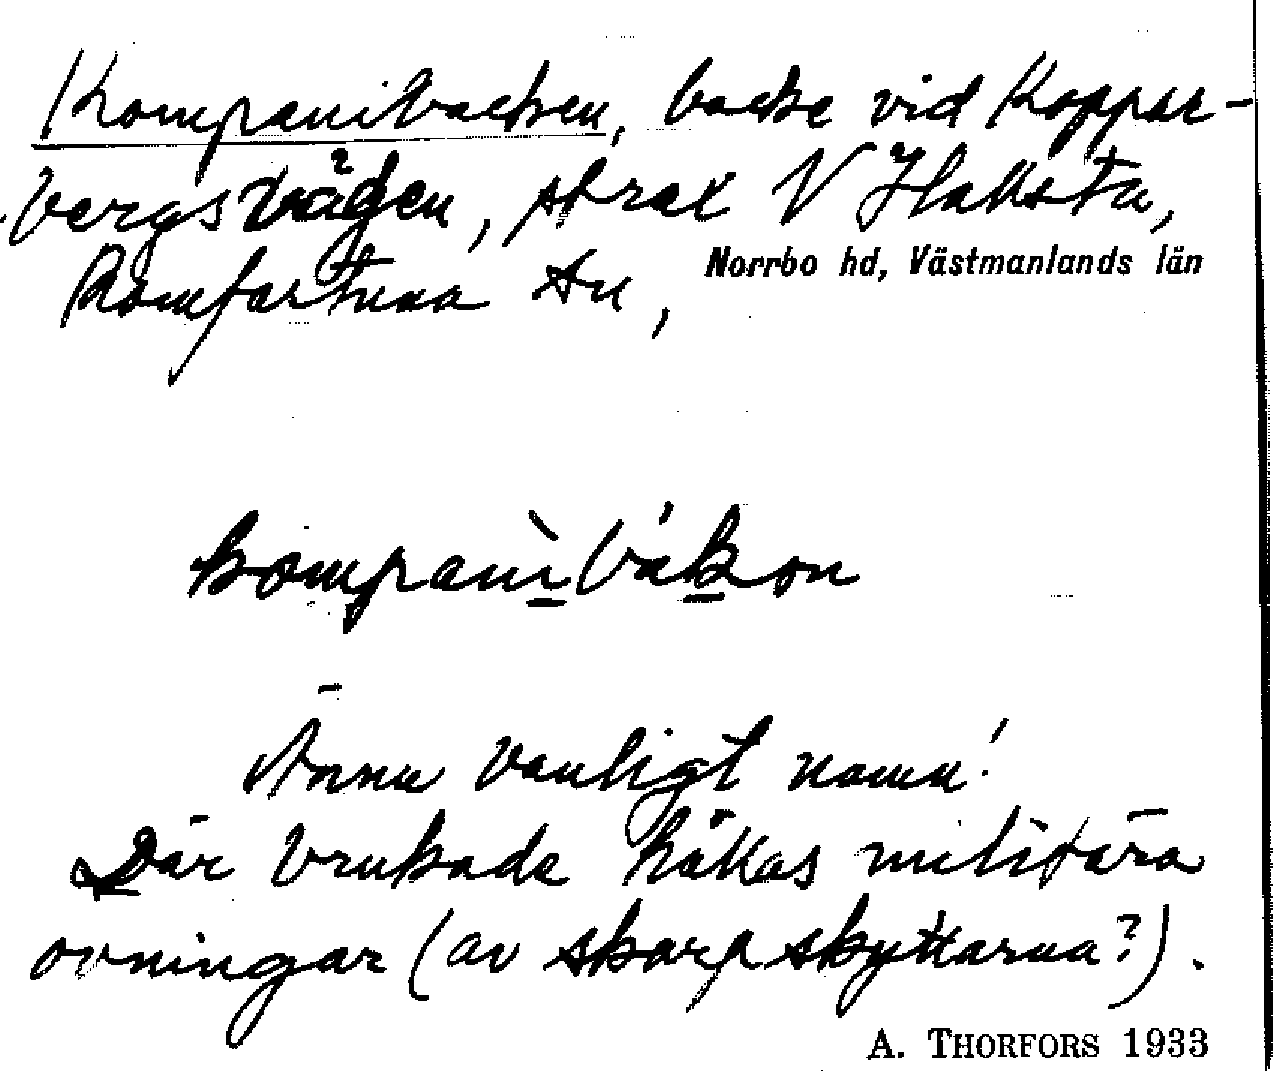 Kompanibacken, backe vid Koppar-
bergsvägen, strax V Hallsta,
Romfartuna sn, Norrbo hd, Västmanlands län
kompanìbákon
Ännu vanligt namn!
Där brukade hållas militära
övningar (av skarpskyttarna?).
A. THORFORS 1933